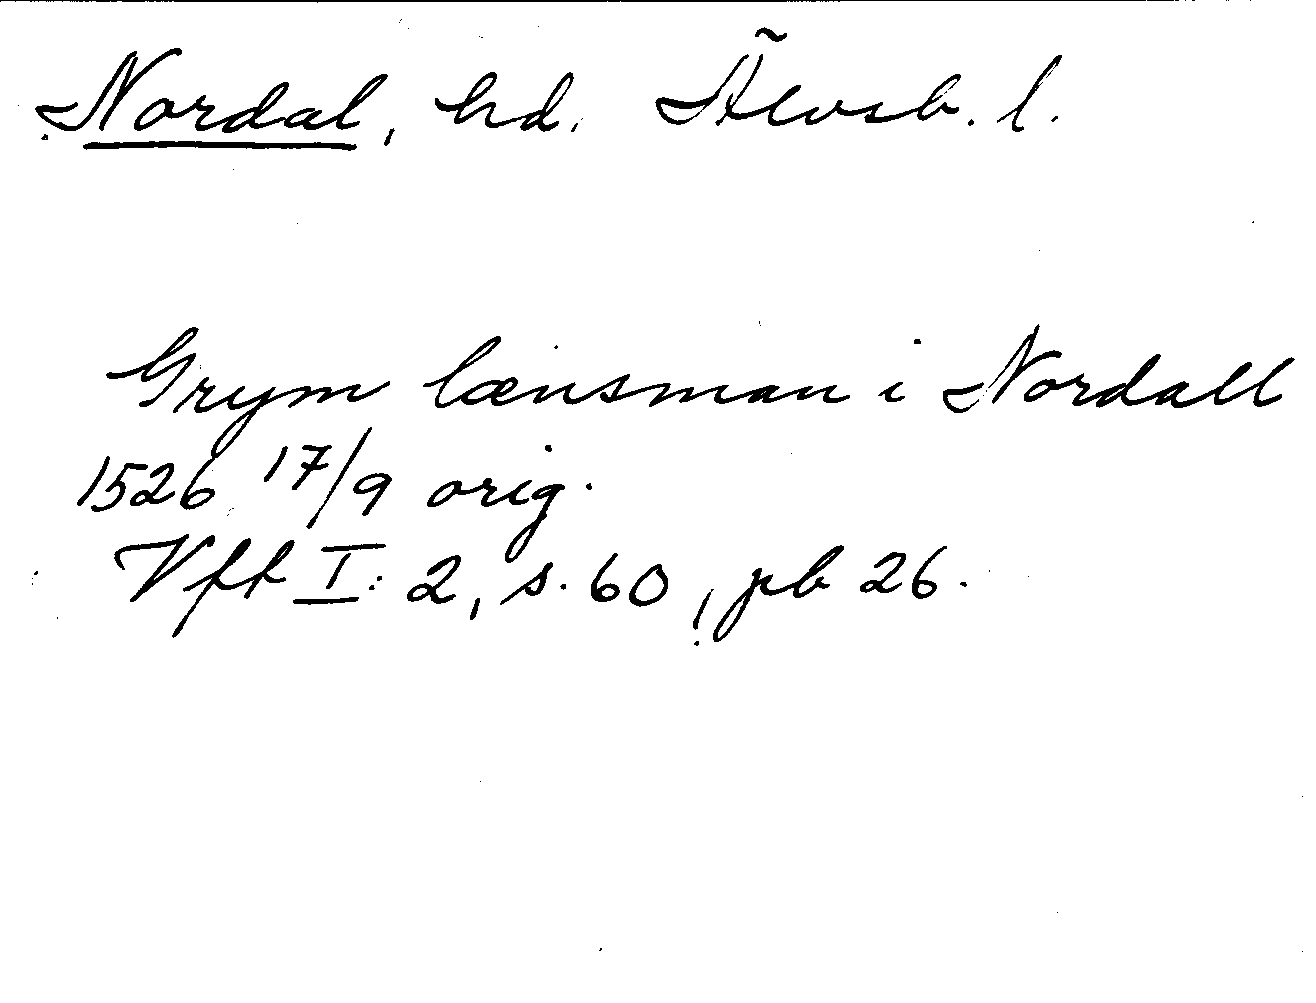 Nordal, hd. Älvsb. l.
Grym lænsman i Nordall
1526 17/9 orig.
Vff I: 2, s. 60, pb 26.